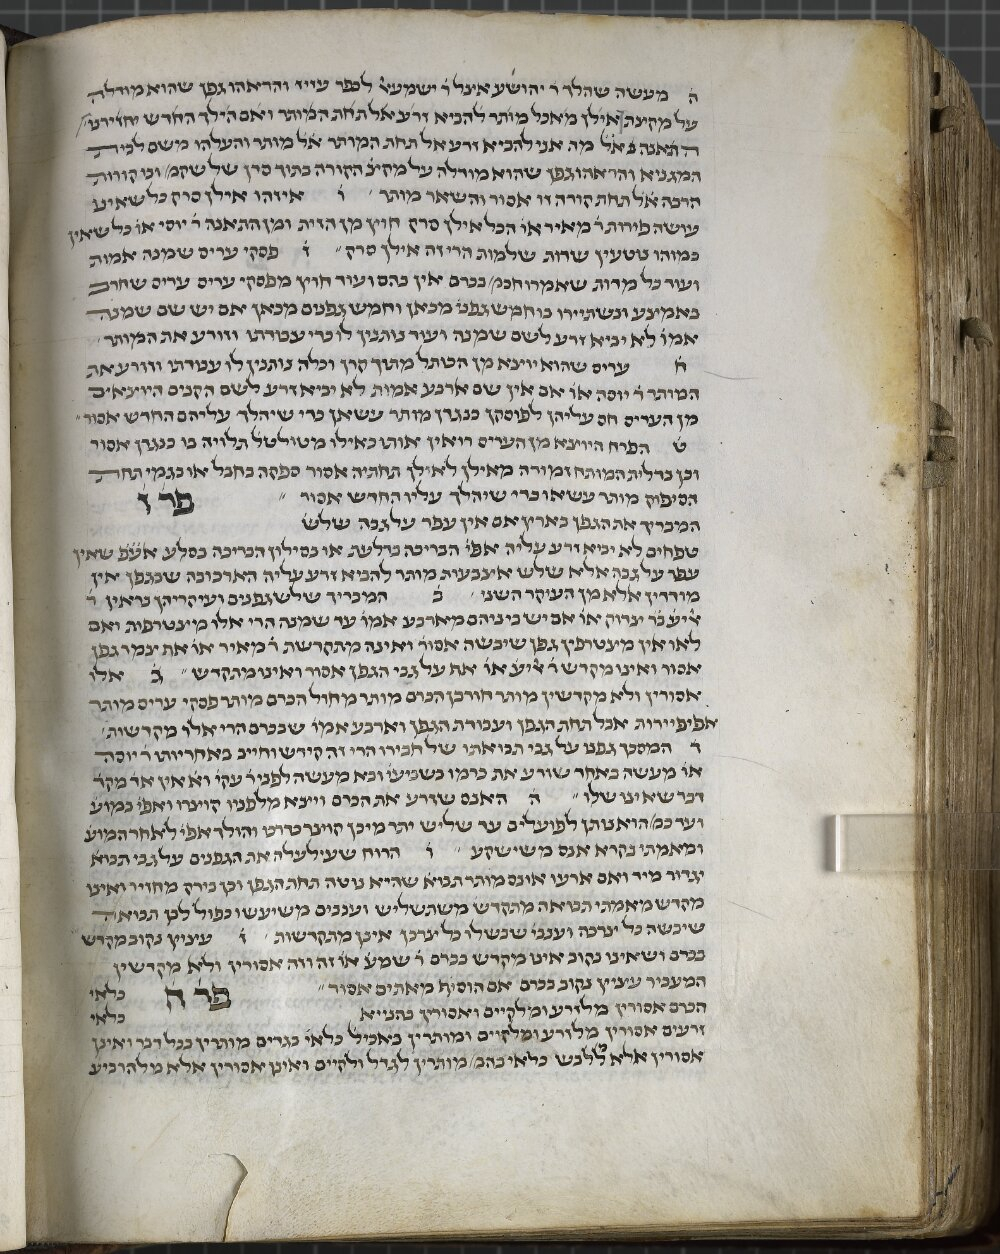 ה מעשה שהלך ר׳ יהושע אצל ר׳ ישמעא׳ לכפר עזיז והראהו גפן שהוא מודלה
על מקצת אילן מאכל מותר להביא זרע אל תחת המותר ואם הילך החדש יחזירנו
התאנה אל מה אני להביא זרע אל תחת המותר אל מותר והעלהו משם לבית
המגניא והראהו גפן שהוא מודלה על מקצ׳ הקורה בתוך סדן של שקמ׳ ובו קורות
הרבה אל תחת קורה זו אסור והשאר מותר ׳ ו איזהו אילן סרק כל שאינו
עושה פירות ר׳ מאיר או׳ הכל אילן סרק חוץ מן הזית ומן התאנה ר׳ יוסי או׳ כל שאין
כמוהו נוטעין שדות שלמות הרי זה אילן סרק ״ ז פסקי עריס שמנה אמות
ועוד כל מדות שאמרו חכמ׳ בכרם אין בהם ועוד חוץ מפסקי עריס עריס שחרב
באמצע ונשתיירו בו חמש גפני׳ מכאן וחמש גפנים מכאן אם יש שם שמנה
אמו׳ לא יביא זרע לשם שמנה ועוד נותנין לו כדי עבודתו וזורע את המותר ׳
ח עריס שהוא יוצא מן הכותל מתוך קרן וכלה נותנין לו עבודתו וזורע את
המותר ר׳ יוסה או׳ אם אין שם ארבע אמות לא יביא זרע לשם הקנים היוצאים
מן העריס חס עליהן לפוסקן כנגדן מותר עשאן כדי שיהלך עליהם החדש אסור ״
ט הפרח היוצא מן העריס רואין אותו כאילו מטוטלת תלויה בו כנגדן אסור
וכן בדלית המותח זמורה מאילן לאילן תחתיה אסור ספקה בחבל או בגמי תחת
הסיפוק מותר עשאו כדי שיהלך עליו החדש אסור ״ פר׳ ז
המבריך את הגפן בארץ אם אין עפר על גבה שלש
טפחים לא יביא זרע עליה אפי׳ הבריכה בדלעת או בסילון הבריכה בסלע אע״פ שאין
עפר על גבה אלא שלש אצבעות מותר להביא זרע עליה הארכובה שבגפן אין
מודדין אלא מן העיקר השני ׳ ב המבריך שלש גפנים ועיקריהן נראין ר׳
אלעז׳ בר׳ צדוק או׳ אם יש ביניהם מארבע אמו׳ עד שמנה הרי אלו מצטרפות ואם
לאו אין מצטרפין גפן שיבשה אסור ואינה מתקדשת ר׳ מאיר או׳ את צמר גפן
אסור ואינו מקדש ר׳ אליע׳ או׳ את על גבי הגפן אסור ואינו מתקדש ״ ג אלו
אסורין ולא מקדשין מותר חורבן הכרם מותר מחול הכרם מותר פסקי עריס מותר
אפיפיירות אבל תחת הגפן ועבודת הגפן וארבע אמו׳ שבכרם הרי אלו מקדשות ׳
ד המסכך גפנו על גבי תבואתו של חבירו הרי זה קידש וחייב באחריותו ר׳ יוסה
או׳ מעשה באחד שזרע את כרמו בשביעי׳ ובא מעשה לפני ר׳ עקי׳ וא׳ אין אד׳ מקד׳
דבר שאינו שלו ״ ה האנס שזרע את הכרם ויצא מלפניו קוצרו ואפי׳ במוע׳
ועד כמ׳ הוא נותן לפועלים עד שליש יתר מיכן קוצר כדרכו והולך אפי׳ לאחר המוע׳
ומאמתי נקרא אנס משישקע ״ ו הרוח שעילעלה את הגפנים על גבי תבוא׳
יגדור מיד ואם ארעו אונס מותר תבוא׳ שהיא נוטה תחת הגפן וכן בירק מחזיר ואינו
מקדש מאמתי תבואה מתקדש משתשליש וענבים משיעשו כפול לבן תבואה
שיבשה כל צרכה וענבי׳ שבשלו כל צרכן אינן מתקדשות ׳ ז עציץ נקוב מקדש
בכרם ושאינו נקוב אינו מקדש בכרם ר׳ שמע׳ או׳ זה וזה אסורין ולא מקדשין
המעביר עציץ נקוב בכרם אם הוסיף מאתים אסור ״
פר׳ ח כלאי
הכרם אסורין מלזרע ומלקיים ואסורין בהנייא כלאי
זרעים אסורין מלזרע ומלקיים ומותרין באכיל׳ כלאי בגדים מותרין בכל דבר ואינן
אסורין אלא מללבש כלאי בהמ׳ מותרין לגדל ולקיים ואינן אסורין אלא מלהרביע